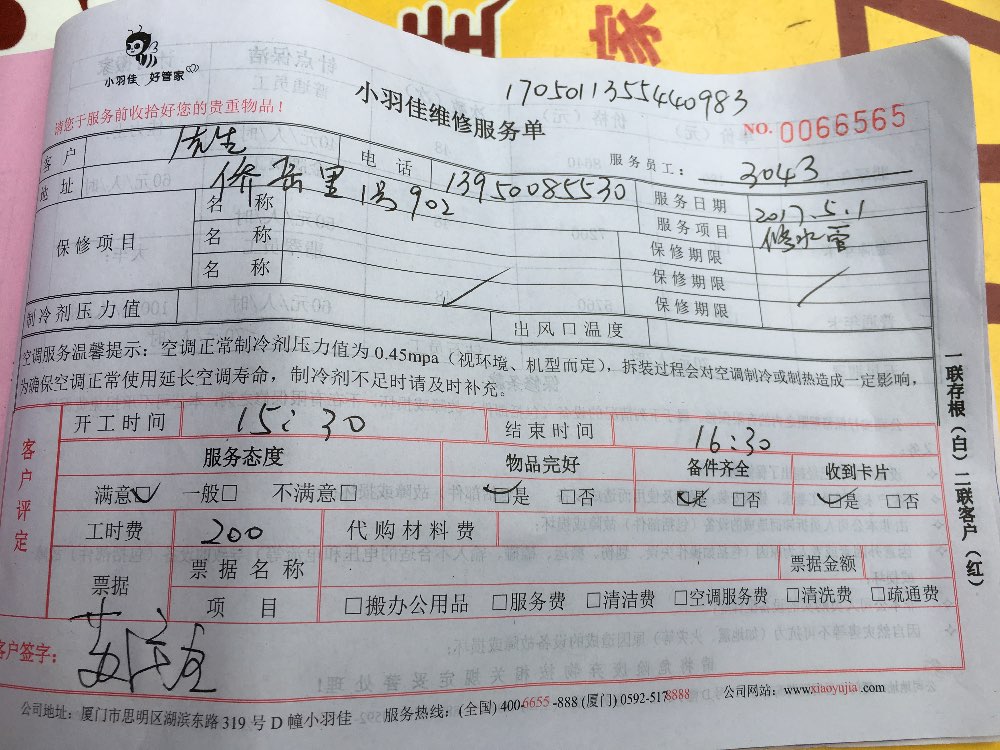 家
小羽佳 好管家
1705011355440983
小羽佳维修服务单
请您于服务前收拾好您的贵重物品！
NO. 0066565
客户 电话 13950085530 服务员工： 3043
地址 侨岳里 1号902 服务日期 2017.5.1
保修项目 名称 服务项目 修水管
名称 保修期限
名称 保修期限
保修期限
制冷剂压力值 出风口温度
空调服务温馨提示：空调正常制冷剂压力值为 0.45mpa（视环境、机型而定），拆装过程会对空调制冷或制热造成一定影响，
为确保空调正常使用延长空调寿命，制冷剂不足时请及时补充。
开工时间 15：30 结束时间 16:30
客户评定
服务态度 物品完好 备件齐全 收到卡片
满意☑ 一般□ 不满意□ ☑是 □否 ☑是 □否 ☑是 □否
工时费 200 代购材料费
票据 票据名称 票据金额
项目 □搬办公用品 □服务费 □清洁费 □空调服务费 □清洗费 □疏通费
客户签字：
公司地址：厦门市思明区湖滨东路 319 号 D 幢小羽佳 服务热线：(全国) 400-6655-888 (厦门) 0592-5178888 公司网站：www.xiaoyujia.com
一联存根（白）二联客户（红）